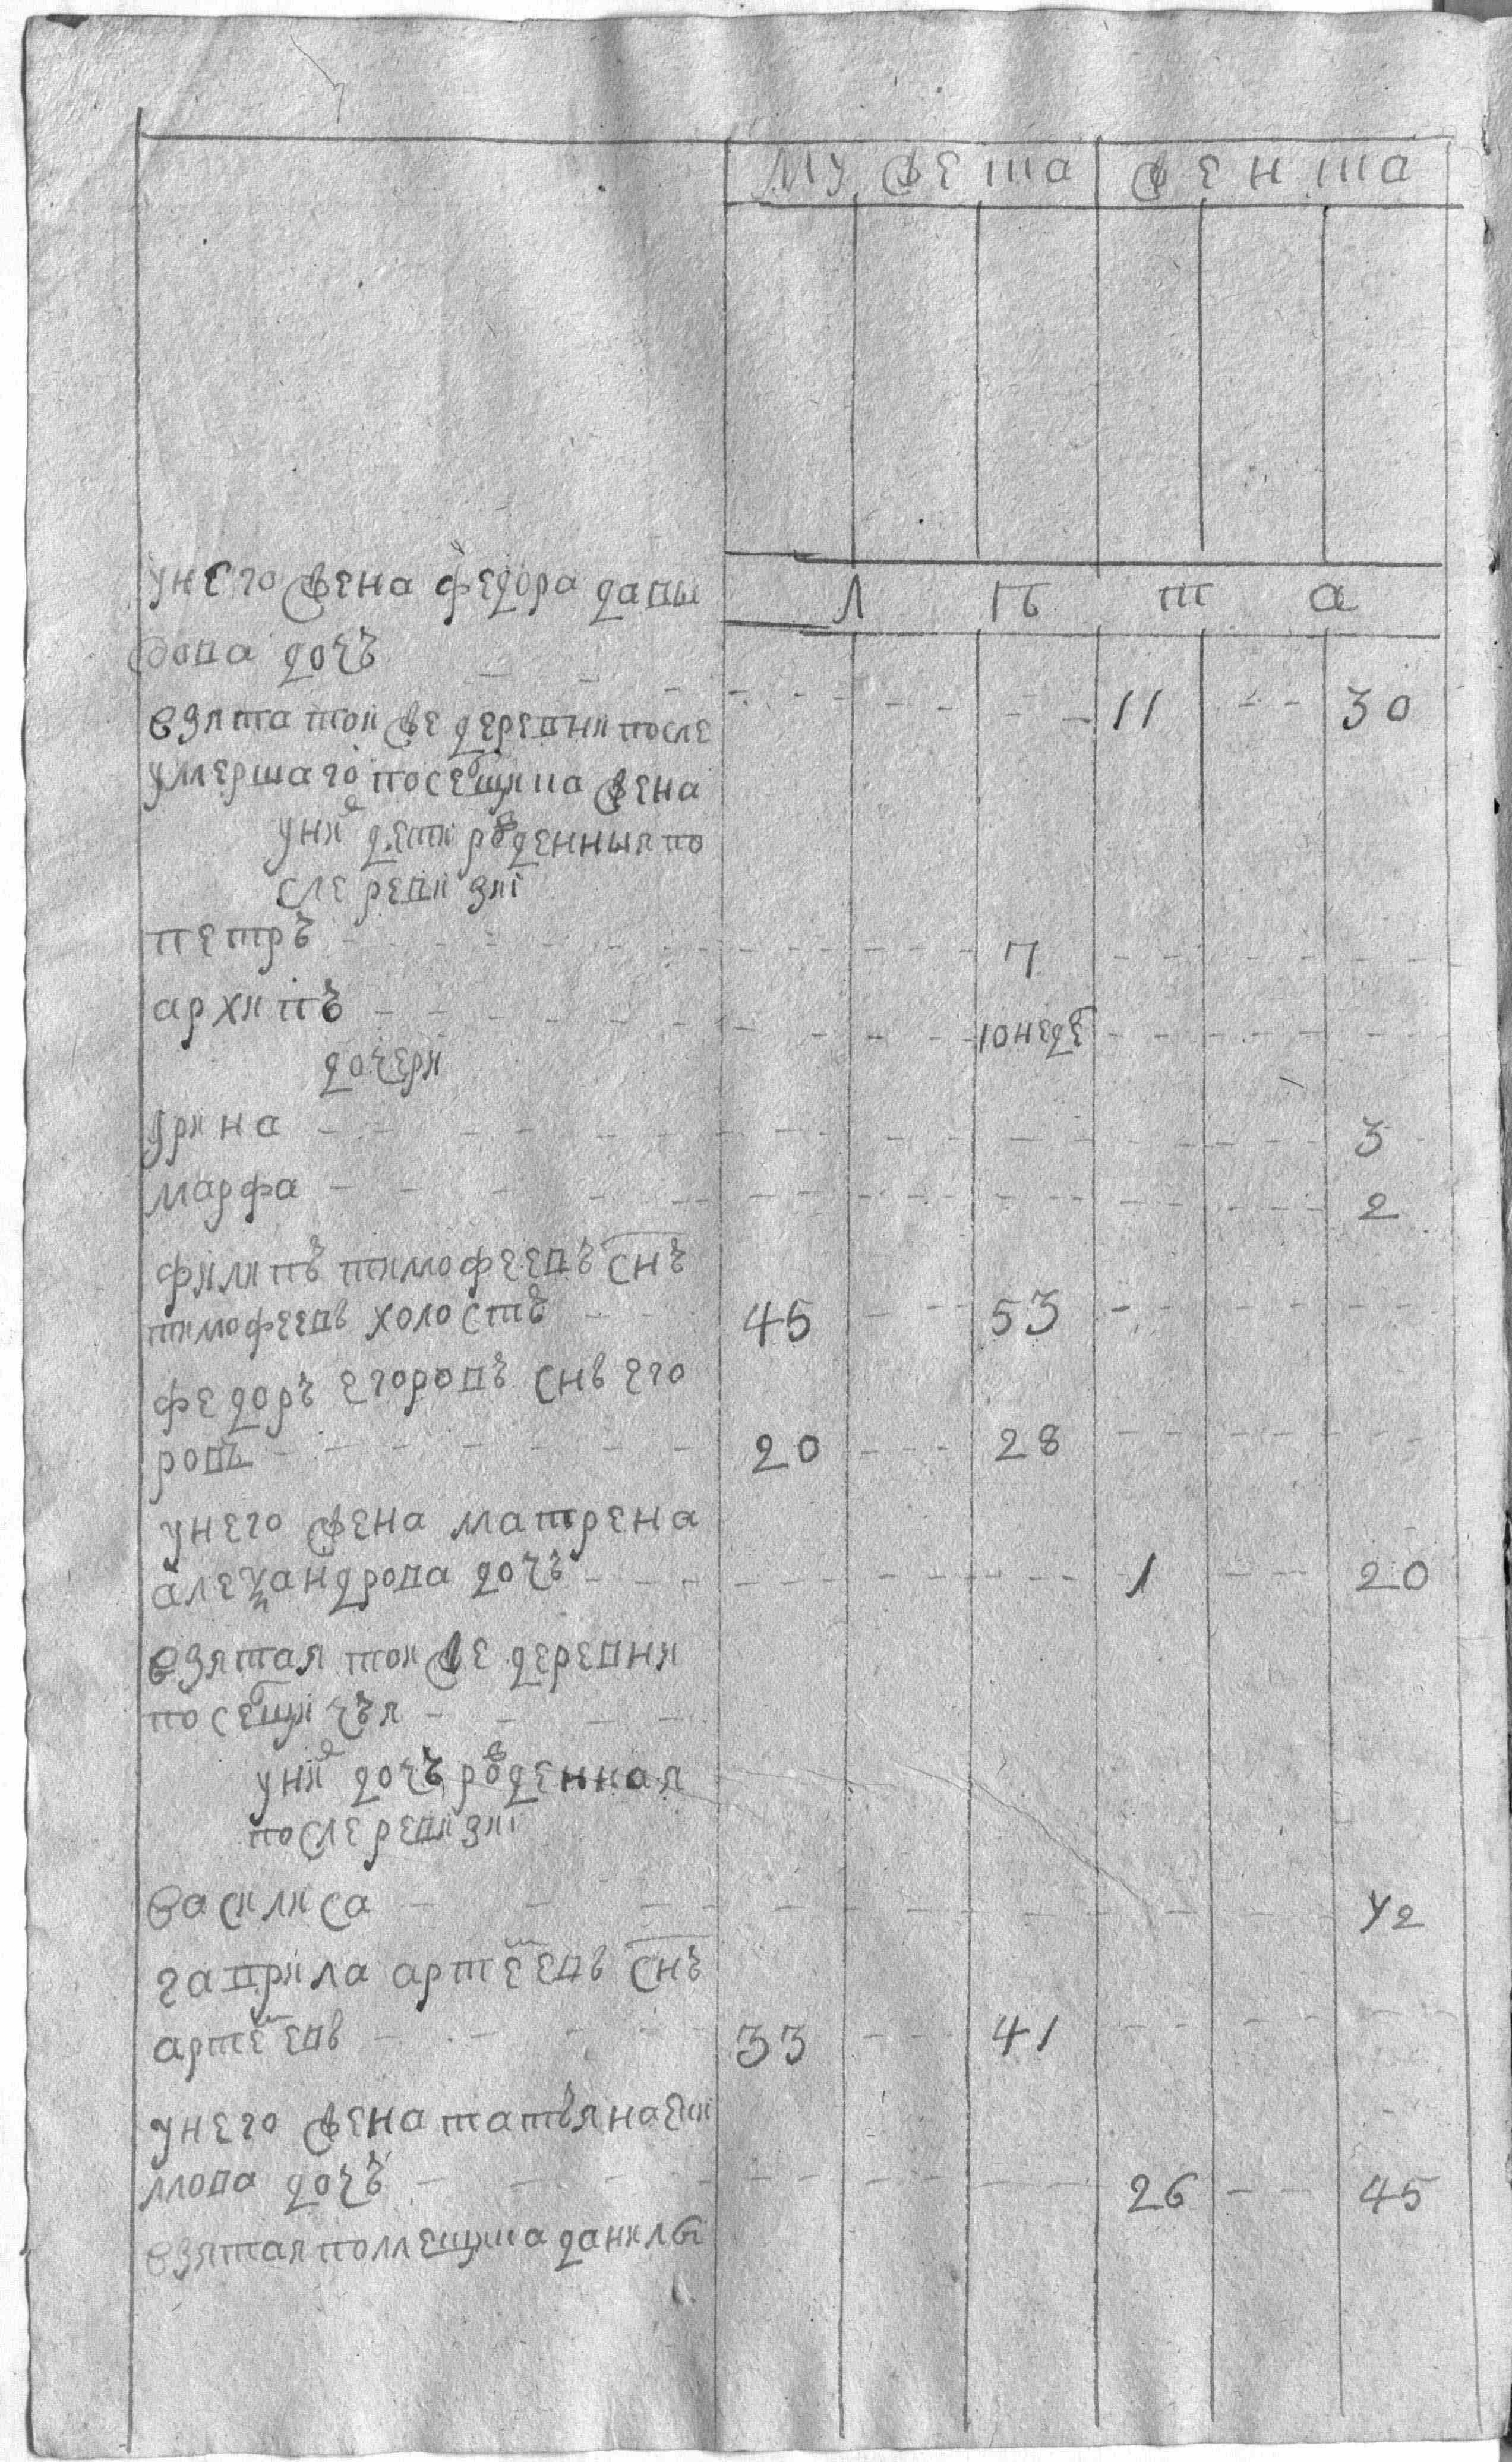 мужеска женска
л ѣ т а
унего жена федора давы
дова дочь 11 30
взята тои же деревни после
умершаго посещика жена
уней дети рожденныя по
сле ревизиі
петръ 7
архипъ 10 недѣ
дочери
урина 3
марфа 2
филипъ тимофеевъ снъ
тимофеевъ холостъ 45 53
федоръ егоровъ снъ его
ровъ 20 28
унего жена матрена
алеѯандрова дочь 1 20
взятая тои же деревни
посещичья
уней дочь рожденная
после ревизиі
василиса 1/2
гаврила артемевъ снъ
артемевъ 33 41
унего жена татьяна ефи
мова дочь 26 45
взятая помещика данилы